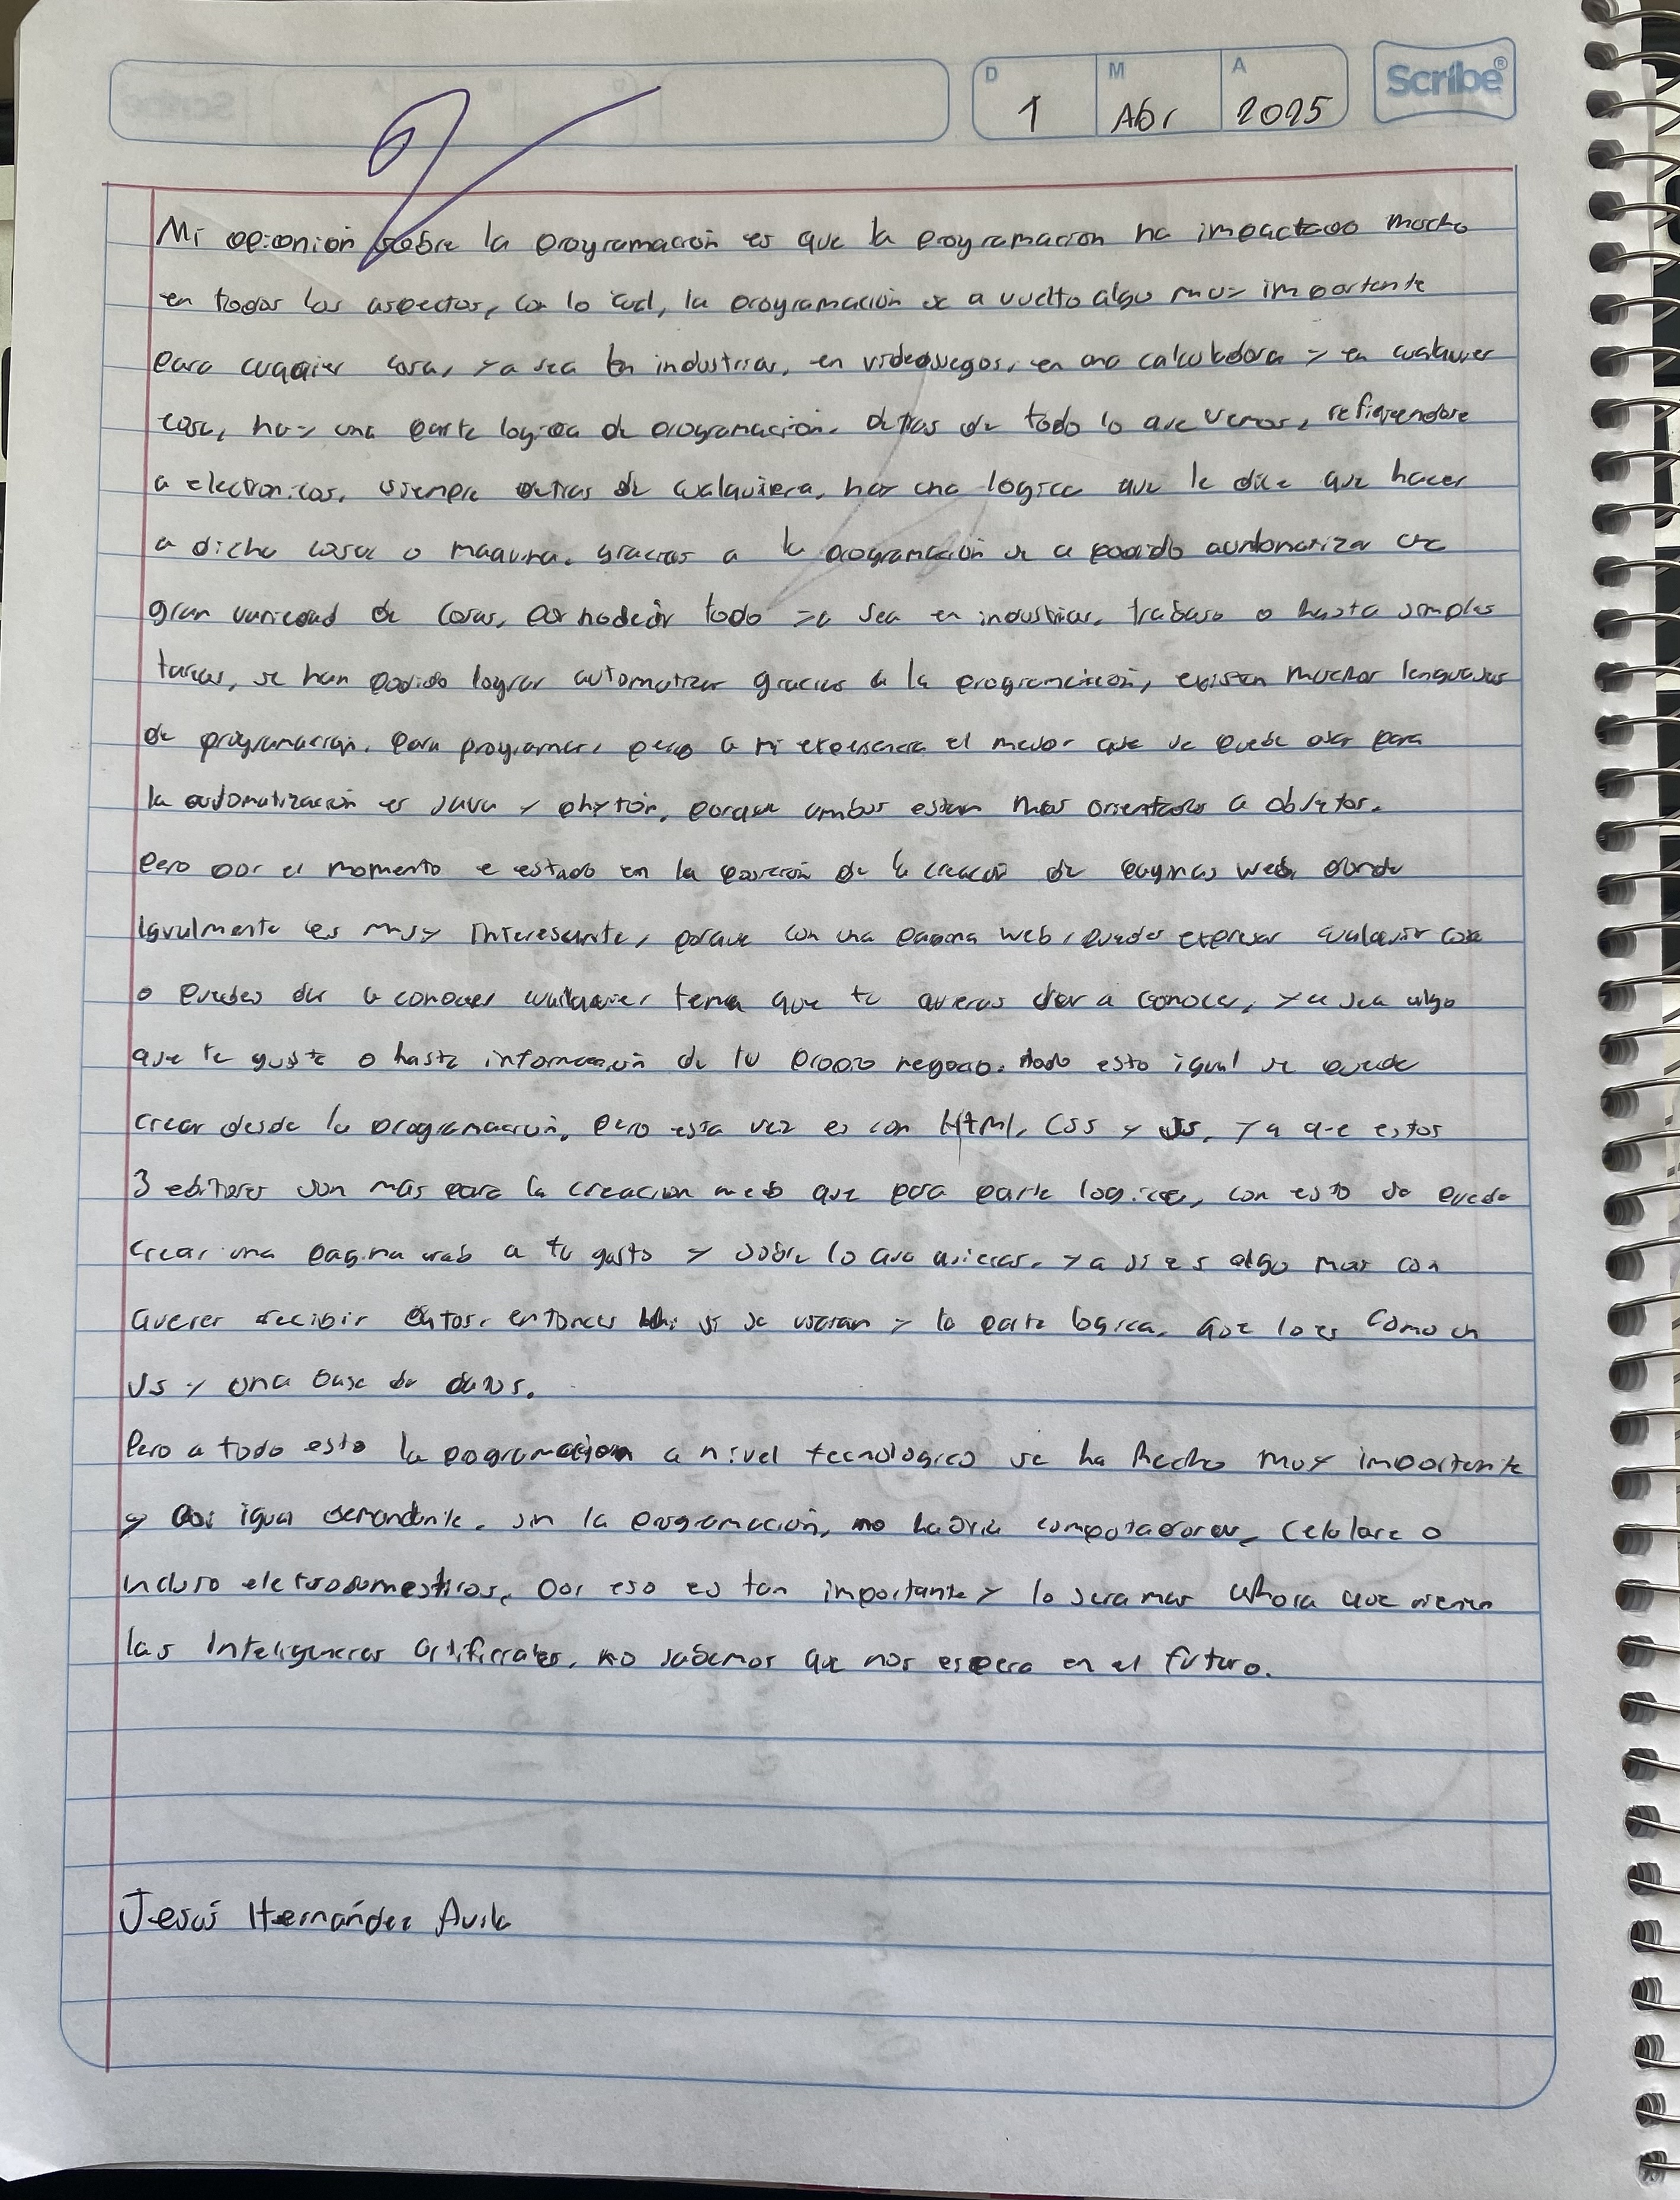 D M A Scribe®
1 Abr 2025
Mi opionión sobre la programación es que la programación ha impactado mucho
en todos los aspectos, con lo cual, la programación se a vuelto algo muy importante
para cuaqier cosa, ya sea en industrias, en videojuegos, en una calculadora y en cualquier
cosa, hay una parte logica de programación. detras de todo lo que vemos, refiriendose
a electronicos, siempre detras de cualquiera, hay una logica que le dice que hacer
a dicha cosa o maquina. gracias a la programación se a podido auntomatizar una
gran variedad de cosas, por no decir todo ya sea en industrias, trabajo o hasta simples
tareas, se han podido lograr automatizar gracias a la programación, existen muchos lenguajes
de programación. para programar, pero a mi experiencia el mejor que se puede usar para
la automatización es Java y phytón, porque ambos estan mas orientados a objetos.
Pero por el momento e estado en la posición de la creación de paginas web, donde
igualmente es muy interesante, porque con una pagina web, puedes expresar cualquier cosa
o puedes dar a conocer cualquier tema que tu quieras dar a conocer, ya sea algo
que te guste o hasta información de tu propio negocio. todo esto igual se puede
crear desde la programación, pero esta vez es con HTML, CSS y JS, ya que estos
3 editores son mas para la creacion web que para parte logica, con esto se puede
crear una pagina web a tu gusto y sobre lo que quieras. ya si es algo mas con
querer recibir datos, entonces si se usaran y la parte logica, que lo es como un
JS y una base de datos.
Pero a todo esto la programacion a nivel tecnologico se ha hecho muy importante
y igual demandante. sin la programación, no habria computadoras, celulare o
incluso eletrodomesticos, por eso es tan importante y lo sera mas ahora que vienen
las inteligencias artificiales, no sabemos que nos espera en el futuro.
Jesús Hernández Avila